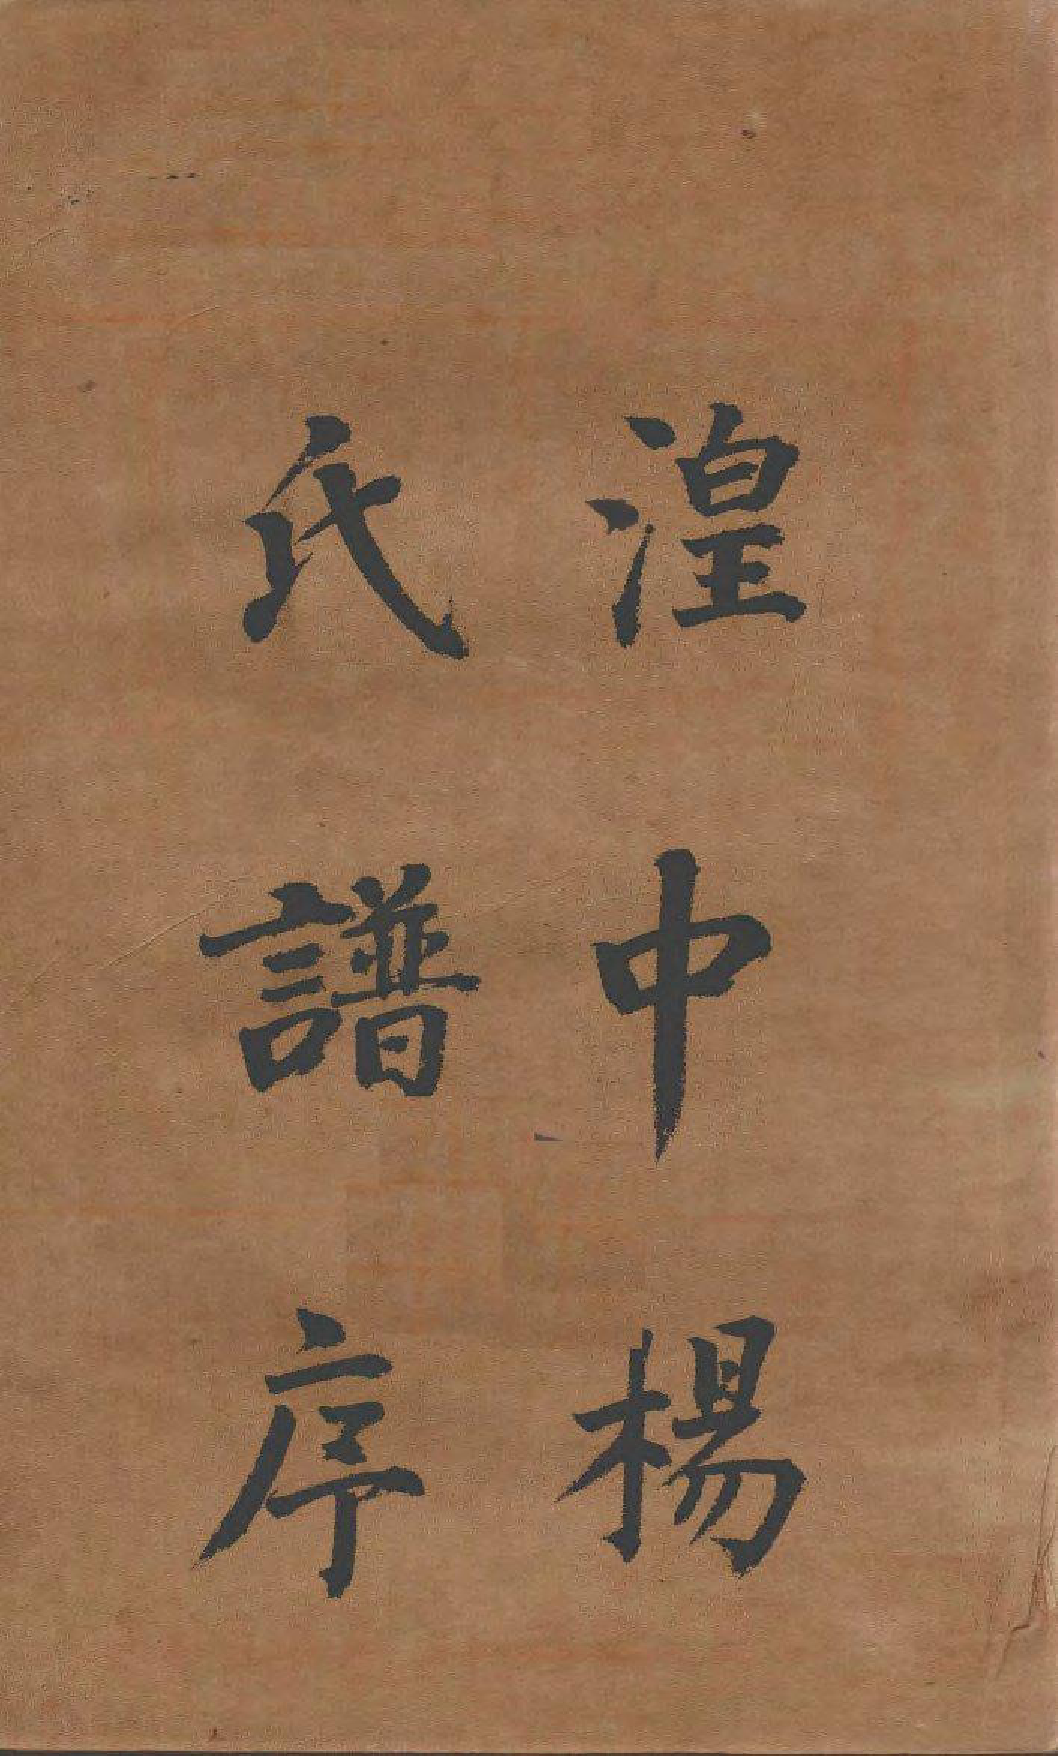 湟中楊
氏譜序